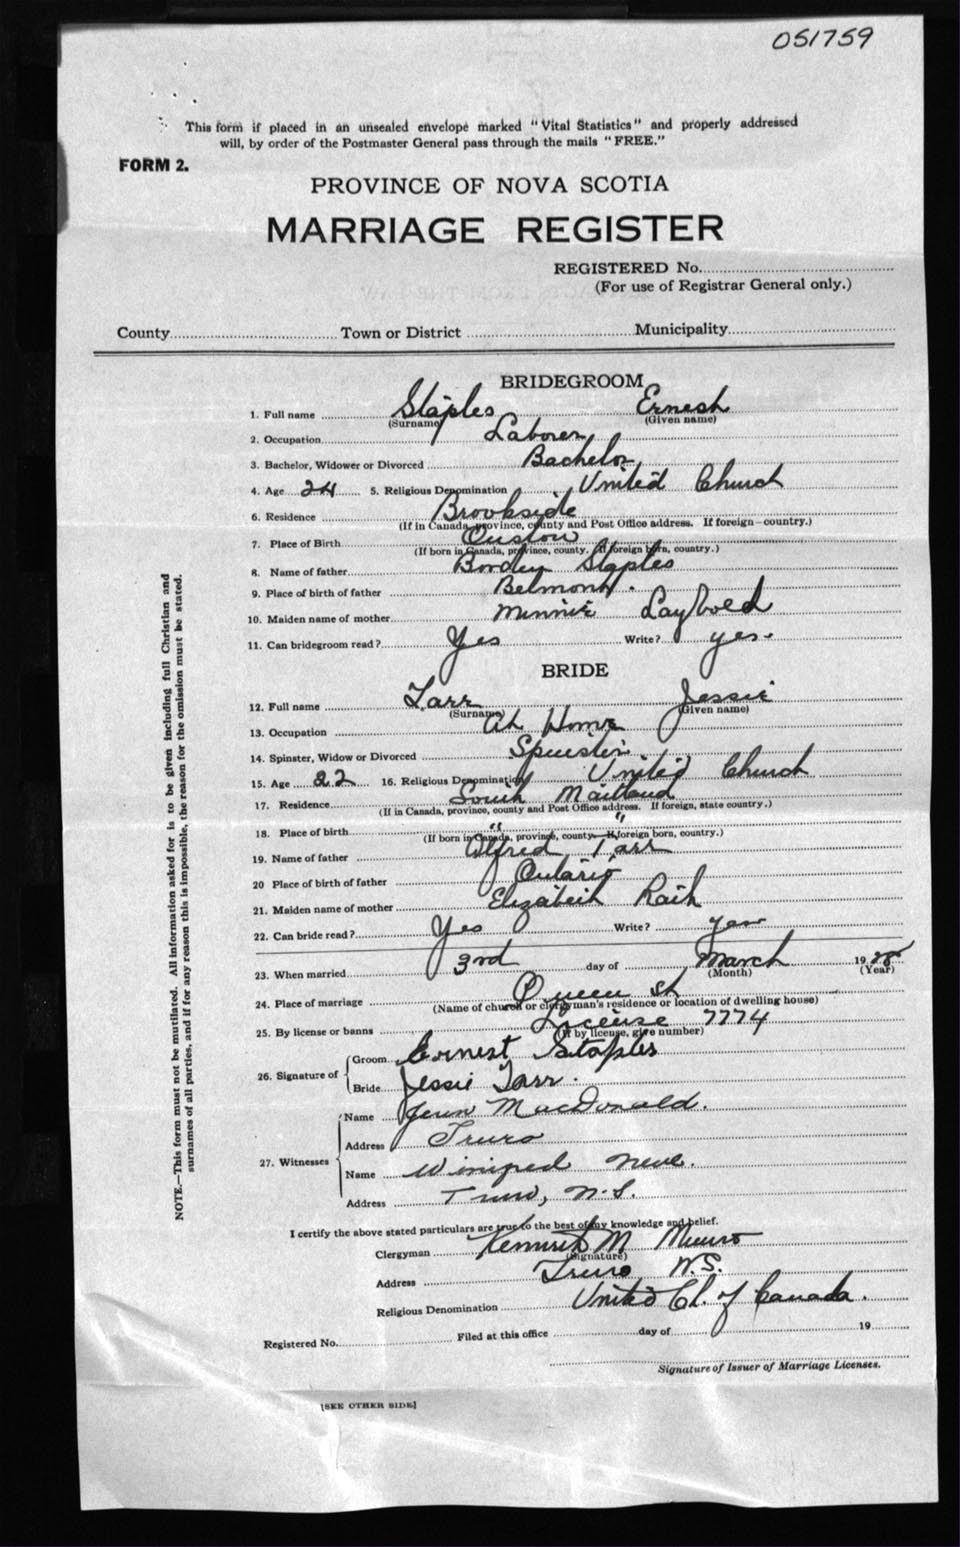 051759
This form if placed in an unsealed envelope marked "Vital Statistics" and properly addressed
will, by order of the Postmaster General pass through the mails "FREE."
FORM 2.
PROVINCE OF NOVA SCOTIA
MARRIAGE REGISTER
REGISTERED No.
(For use of Registrar General only.)
County Town or District Municipality
BRIDEGROOM
1. Full name Staples Ernest
(Surname) (Given name)
2. Occupation Laborer
3. Bachelor, Widower or Divorced Bachelor
4. Age 24 5. Religious Denomination United Church
6. Residence Brookside
(If in Canada, province, county and Post Office address. If foreign—country.)
7. Place of Birth Onslow
(If born in Canada, province, county. If foreign born, country.)
8. Name of father Borden Staples
9. Place of birth of father Belmont.
10. Maiden name of mother Minnie Layboed
11. Can bridegroom read? Yes Write? yes.
BRIDE
12. Full name Tarr Jessie
(Surname) (Given name)
13. Occupation At Home
14. Spinster, Widow or Divorced Spinster
15. Age 22 16. Religious Denomination United Church
17. Residence South Maitland
(If in Canada, province, county and Post Office address. If foreign, state country.)
18. Place of birth " "
(If born in Canada, province, county. If foreign born, country.)
19. Name of father Alfred Tarr
20 Place of birth of father Ontario
21. Maiden name of mother Elizabeth
22. Can bride read? Yes Write? yes
23. When married 3rd day of March 1928
(Month) (Year)
24. Place of marriage Queen St
(Name of church or clergyman's residence or location of dwelling house)
25. By license or banns License 7774
(If by license, give number)
26. Signature of Groom Ernest Staples
Bride Jessie Tarr.
27. Witnesses Name MacDonald.
Address Truro
Name Winifred
Address Truro, N.S.
I certify the above stated particulars are true to the best of my knowledge and belief.
Clergyman Kenneth M Munro
(Signature)
Address Truro N.S.
Religious Denomination United Ch. of Canada.
Registered No. Filed at this office day of 19
Signature of Issuer of Marriage Licenses.
[SEE OTHER SIDE]
NOTE.—This form must not be mutilated. All information asked for is to be given including full Christian and
surnames of all parties, and if for any reason this is impossible, the reason for the omission must be stated.